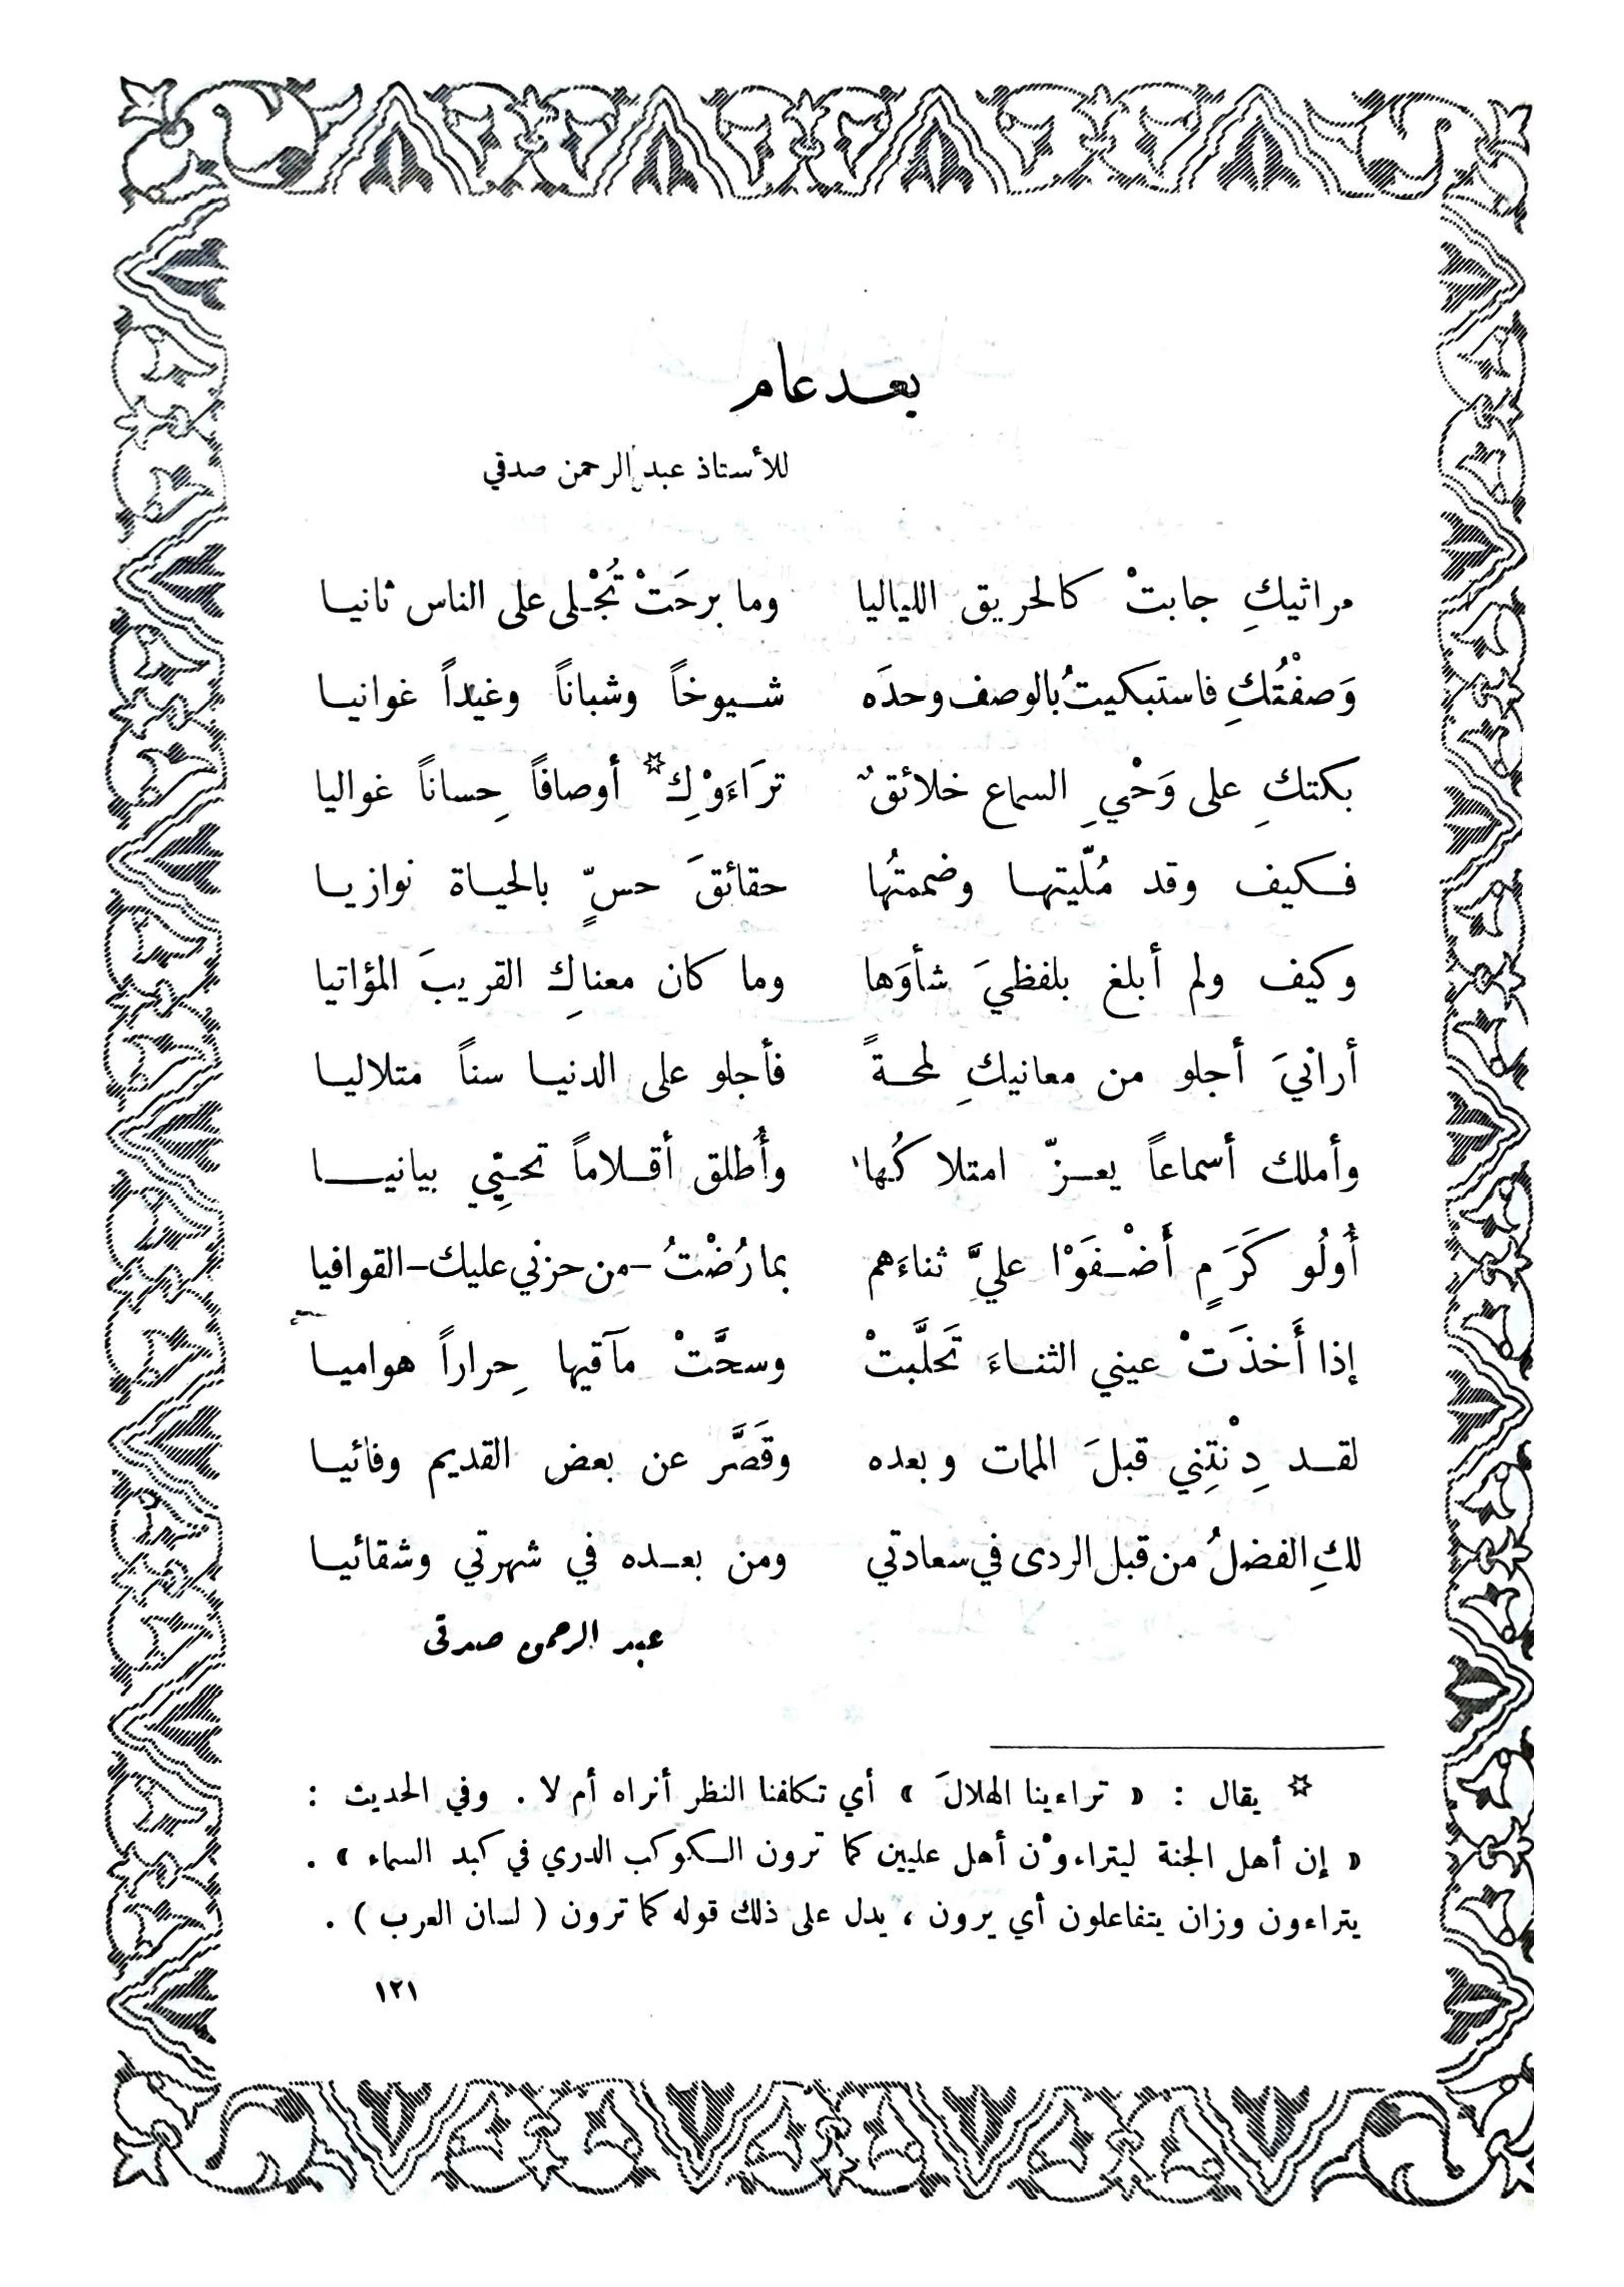 بعد عام
للأستاذ عبد الرحمن صدقي
مراثيكِ جابتْ كالحريق اللياليا وما برحَتْ تُجْلى على الناس ثانيا
وَصفْتُكِ فاستبكيتُ بالوصف وحدَه شيوخاً وشباناً وغيداً غوانيا
بكتكِ على وَحْيِ السماع خلائقٌ تَراءَوْكِ* أوصافاً حِساناً غواليا
فكيف وقد مُلّيتها وضممتُها حقائقَ حسٍّ بالحياة نوازيا
وكيف ولم أبلغ بلفظيَ شأوَها وما كان معناكِ القريبَ المؤاتيا
أرانيَ أجلو من معانيكِ لمحةً فأجلو على الدنيا سناً متلاليا
وأملك أسماعاً يعزّ امتلاكُها وأُطلق أقلاماً تحيّي بيانيا
أُولُو كَرَمٍ أَضْفَوْا عليَّ ثناءَهم بما رُضْتُ -من حزني عليك- القوافيا
إذا أَخذَتْ عيني الثناءَ تَحلَّبتْ وسحَّتْ مآقيها حِراراً هواميا
لقد دِنْتِني قبلَ الممات وبعده وقَصَّر عن بعض القديم وفائيا
لكِ الفضلُ من قبل الردى في سعادتي ومن بعده في شهرتي وشقائيا
عبد الرحمن صدقى
* يقال : « تراءينا الهلالَ » أي تكلفنا النظر أنراه أم لا . وفي الحديث :
« إن أهل الجنة ليتراءوْن أهل عليين كما ترون الكوكب الدري في كبد السماء » .
يتراءون وزان يتفاعلون أي يرون ، يدل على ذلك قوله كما ترون ( لسان العرب ) .
١٢١